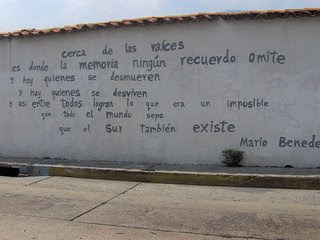 cerca de las raíces
es donde la memoria ningún recuerdo omite
y hay quienes se desmueren
y hay quienes se desviven
y así entre todos logran lo que era un imposible
que todo el mundo sepa
que el sur también existe
Mario Bened